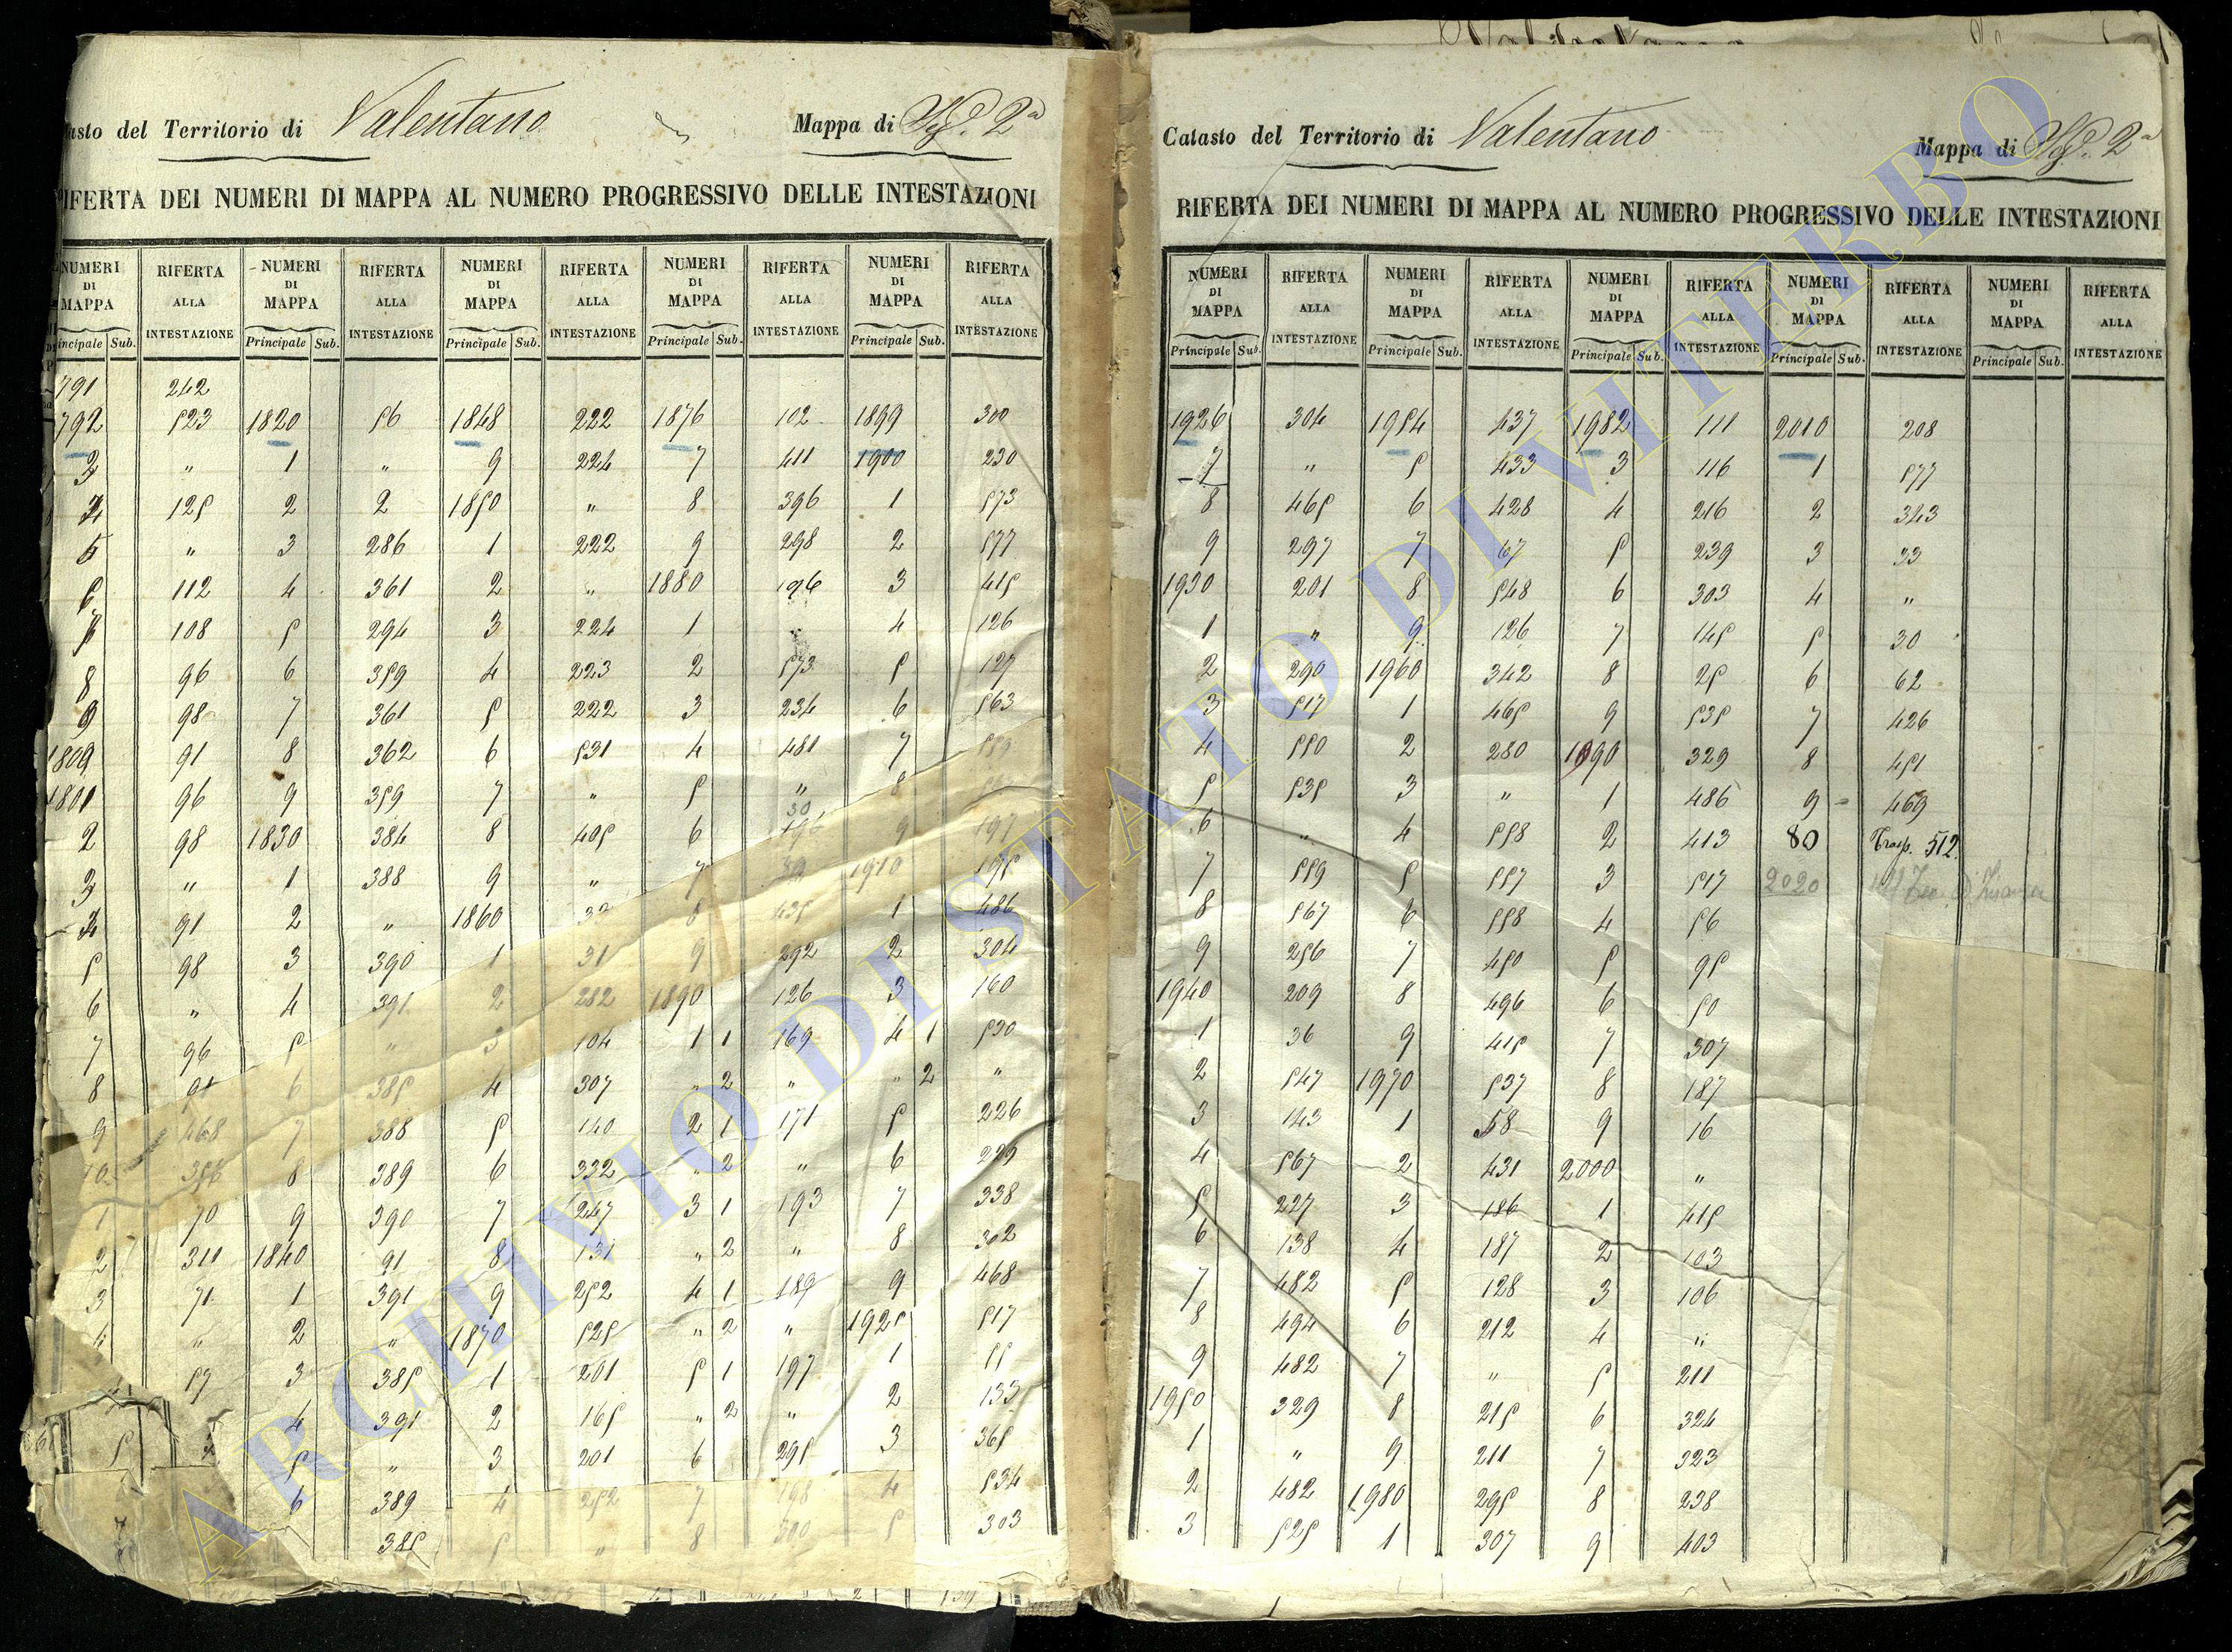 Valdentano
asto del Territorio di Valentano Mappa di Sez. 2ª
RIFERTA DEI NUMERI DI MAPPA AL NUMERO PROGRESSIVO DELLE INTESTAZIONI
NUMERI DI MAPPA RIFERTA ALLA INTESTAZIONE NUMERI DI MAPPA RIFERTA ALLA INTESTAZIONE NUMERI DI MAPPA RIFERTA ALLA INTESTAZIONE NUMERI DI MAPPA RIFERTA ALLA INTESTAZIONE NUMERI DI MAPPA RIFERTA ALLA INTESTAZIONE
Principale Sub. Principale Sub. Principale Sub. Principale Sub. Principale Sub.
791 242
792 523 1820 56 1848 222 1876 102 1899 300
3 " 1 " 9 224 7 411 1900 230
4 125 2 2 1850 " 8 396 1 573
5 " 3 286 1 222 9 298 2 577
6 112 4 361 2 " 1880 196 3 415
7 108 5 294 3 224 1 " 4 126
8 96 6 359 4 223 2 573 5 127
9 98 7 361 5 222 3 234 6 563
1809 91 8 362 6 531 4 481 7 559
1801 96 9 359 7 " 5 " 8
2 98 1830 384 8 405 6 196 9 197
3 " 1 388 9 " 7 30 1910 195
4 91 2 " 1860 32 8 435 1 486
5 98 3 390 1 31 9 292 2 304
6 " 4 391 2 282 1890 126 3 160
7 96 5 " 3 104 1 1 169 4 1 530
8 91 6 385 4 307 " 2 " " 2 "
9 468 7 388 5 140 2 1 171 5 226
10 358 8 389 6 332 " 2 " 6 229
1 70 9 390 7 247 3 1 193 7 338
2 311 1840 91 8 131 " 2 " 8 302
3 71 1 391 9 252 4 1 189 9 468
4 " 2 " 1870 525 " 2 " 1925 517
57 3 385 1 201 5 1 197 1 55
4 391 2 165 " 2 " 2 133
5 " 3 201 6 295 3 365
6 389 4 252 7 198 4 534
385 5 " 8 300 5 303
Catasto del Territorio di Valentano Mappa di Sez. 2ª
RIFERTA DEI NUMERI DI MAPPA AL NUMERO PROGRESSIVO DELLE INTESTAZIONI
NUMERI DI MAPPA RIFERTA ALLA INTESTAZIONE NUMERI DI MAPPA RIFERTA ALLA INTESTAZIONE NUMERI DI MAPPA RIFERTA ALLA INTESTAZIONE NUMERI DI MAPPA RIFERTA ALLA INTESTAZIONE NUMERI DI MAPPA RIFERTA ALLA INTESTAZIONE
Principale Sub. Principale Sub. Principale Sub. Principale Sub. Principale Sub.
1926 304 1954 437 1982 111 2010 208
7 " 5 433 3 116 1 577
8 465 6 428 4 216 2 343
9 297 7 67 5 239 3 33
1930 201 8 548 6 303 4 "
1 " 9 126 7 145 5 30
2 290 1960 342 8 25 6 62
3 517 1 465 9 535 7 426
4 550 2 280 1990 329 8 451
5 535 3 " 1 486 9 469
6 " 4 558 2 413 80 Trasp. 512
7 559 5 557 3 517 2020
8 567 6 558 4 56
9 256 7 450 5 95
1940 209 8 496 6 50
1 36 9 415 7 307
2 547 1970 537 8 187
3 143 1 58 9 16
4 567 2 431 2000 "
5 227 3 186 1 415
6 138 4 187 2 103
7 482 5 128 3 106
8 494 6 212 4 "
9 482 7 " 5 211
1950 329 8 215 6 324
1 " 9 211 7 323
2 482 1980 295 8 238
3 525 1 307 9 403
ARCHIVIO DI STATO DI VITERBO